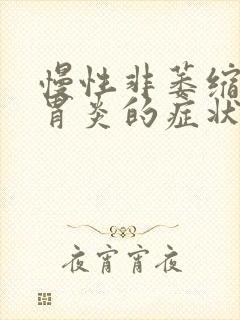 慢性非萎缩
胃炎的症状
夜宵宵夜